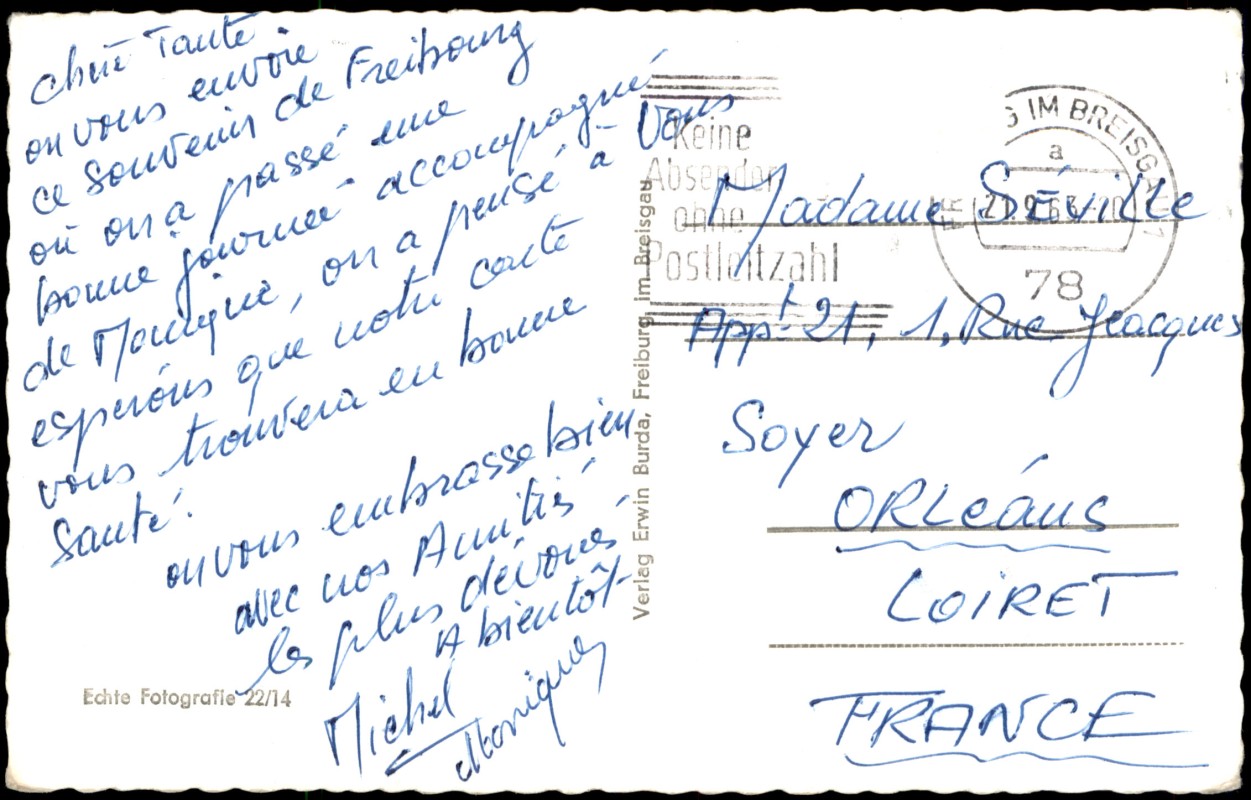 chère Tante
on vous envoie
ce souvenir de Freibourg
où on a passé une
bonne journée accompagné
de Monique, on a pensé à vous
espérons que notre carte
vous trouvera en bonne
Santé.
on vous embrasse bien
avec nos Amitiés
les plus dévoués
A bientôt
Michel
Monique
Echte Fotografie 22/14
Verlag Erwin Burda, Freiburg im Breisgau
Keine
Absender
ohne
Postleitzahl
G IM BREISGA
a
78
Madame SÉVille
Appt 21, 1, Rue Jeacques
Soyer
ORLéans
LOIRET
FRANCE